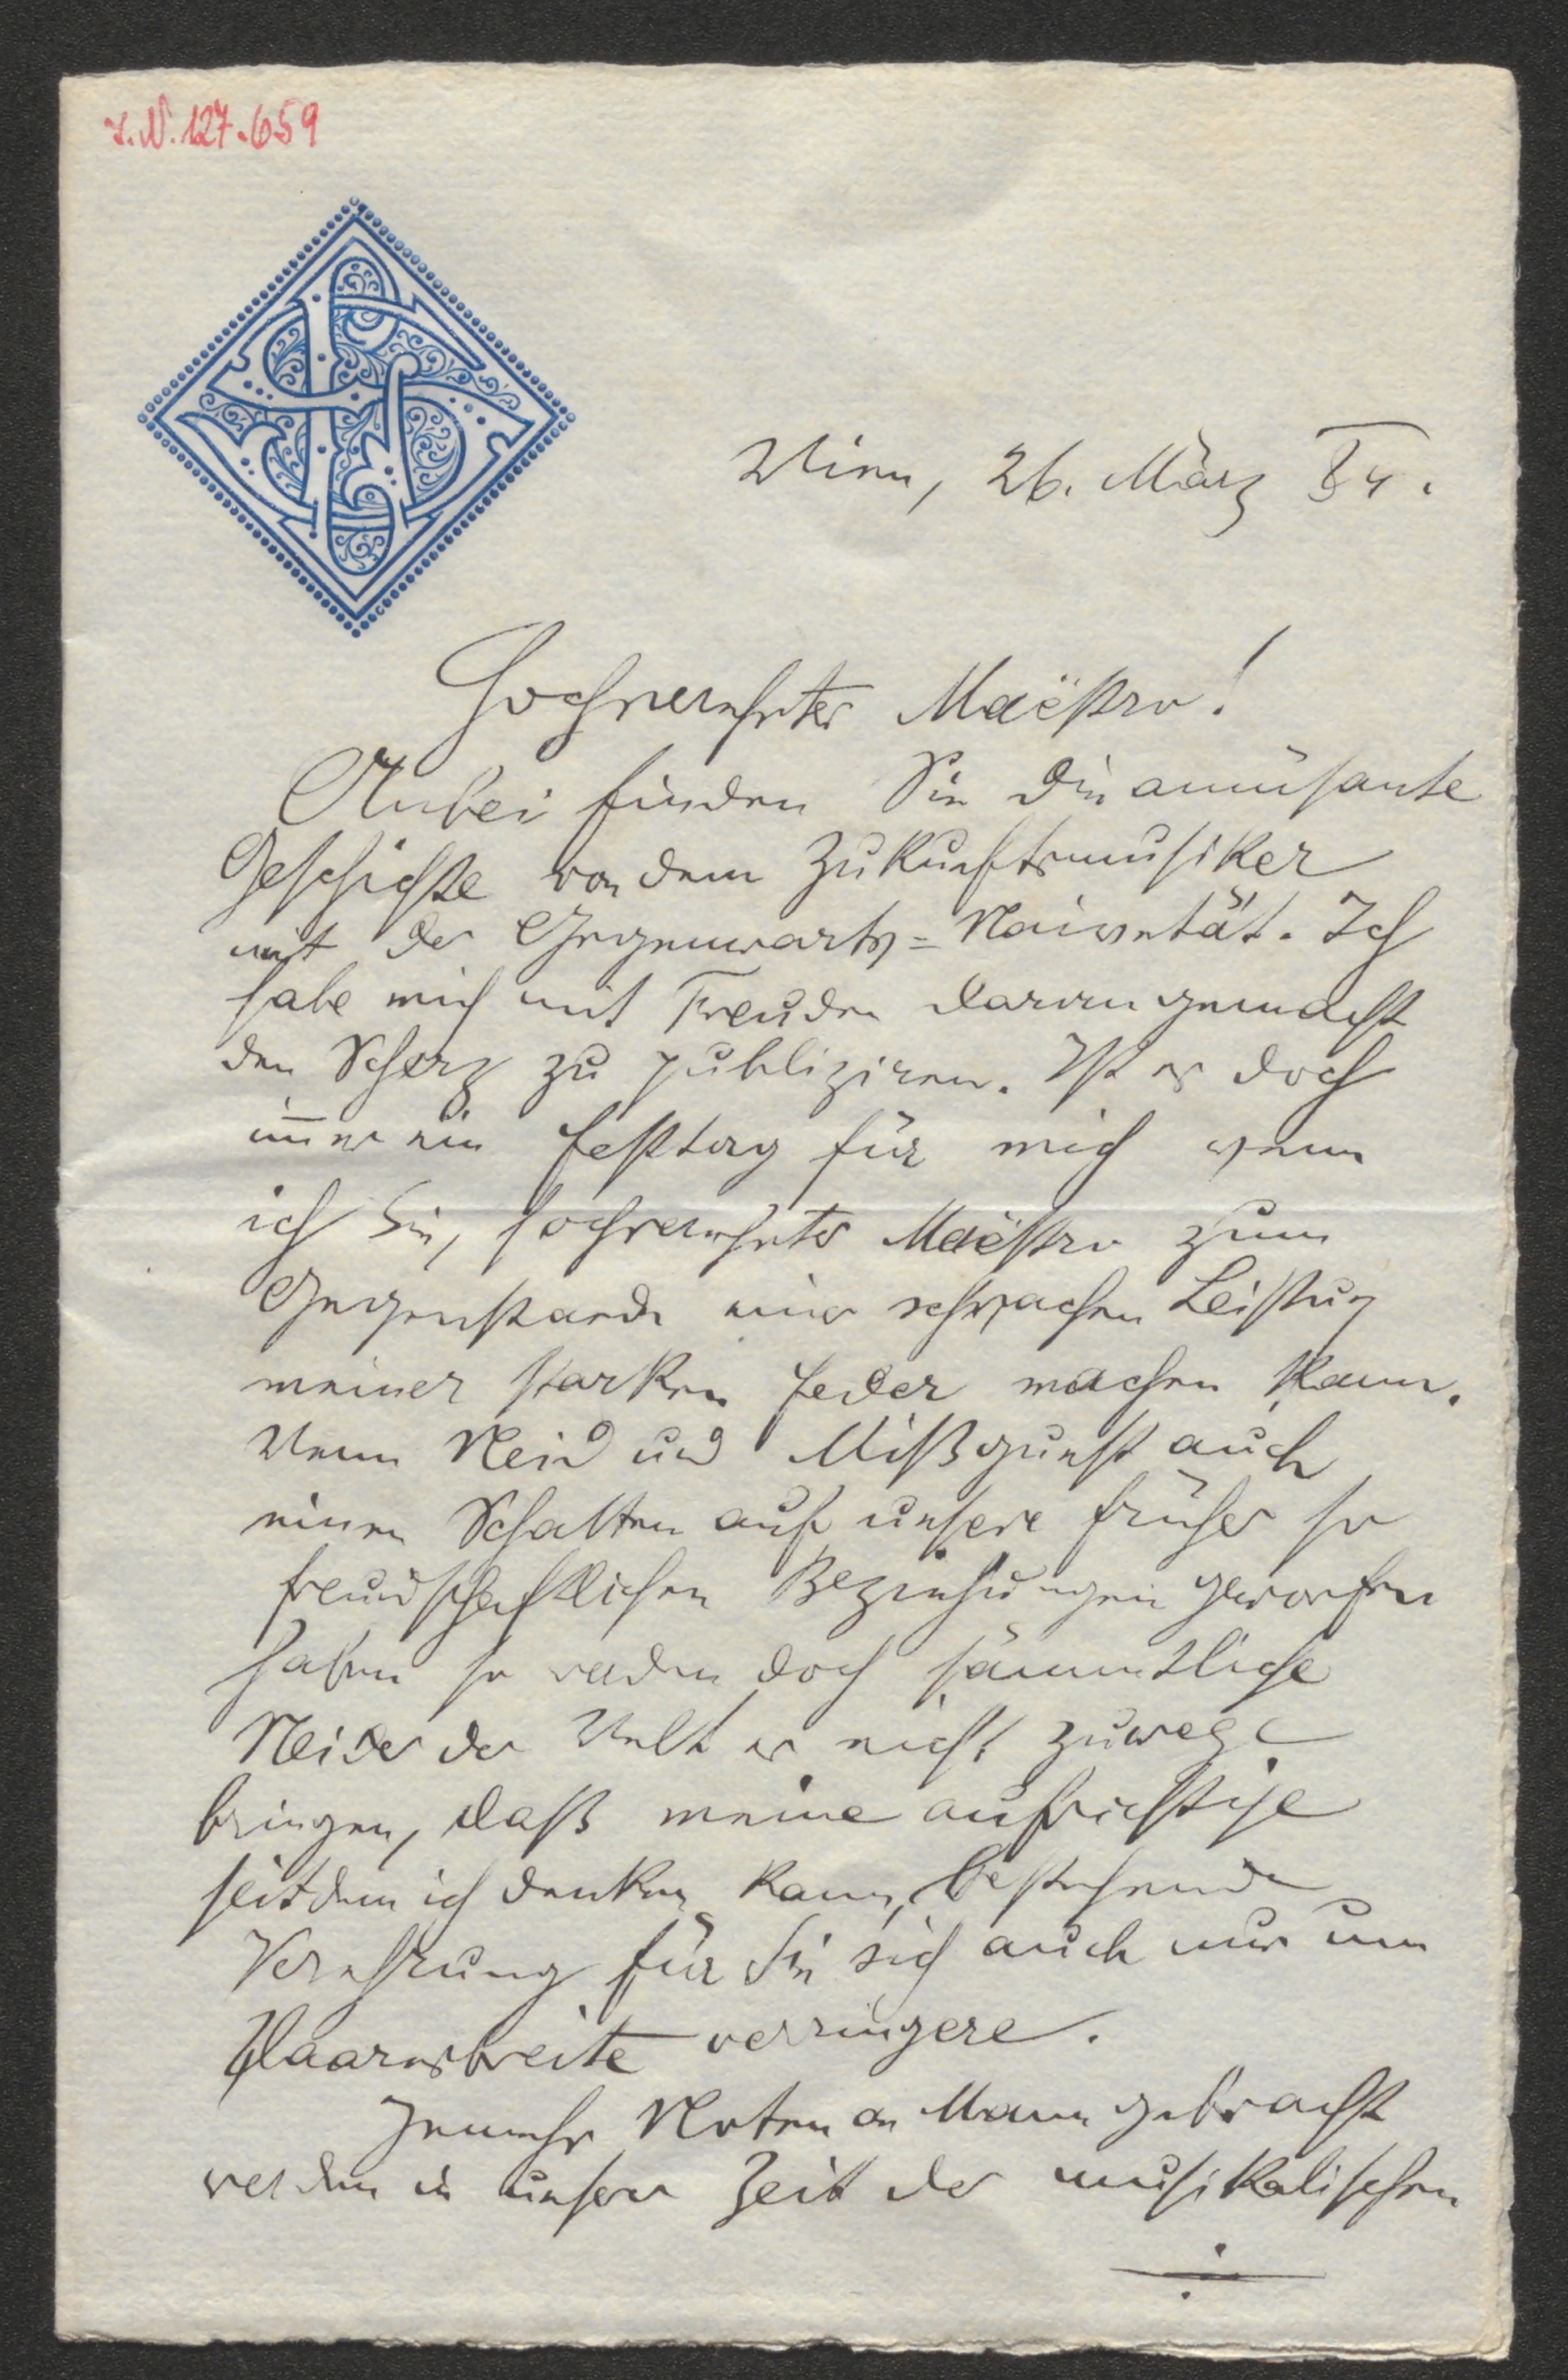 I.N. 127.659
Wien, 26. März 84.
Hochverehrter Maëstro!
Anbei finden Sie die amüsante
Geschichte von dem Zukunftsmusiker
mit der Gegenwarts=Naivetät. Ich
habe mich mit Freuden daran gemacht
den Scherz zu publiziren. Ist es doch
im̅er ein Festtag für mich wenn
ich Sie, hochverehrter Maëstro zum
Gegenstande einer schwachen Leistung
meiner starken Feder machen kann.
Wenn Neid und Mißgunst auch
einen Schatten auf unsere früher so
freundschaftlichen Beziehungen geworfen
haben so werden doch sämmtliche
Neider der Welt es nicht zuwege
bringen, daß meine aufrichtige
seitdem ich denken kann, bestehende
Verehrung für Sie sich auch nur um
Haaresbreite verringere.
Jemehr Noten an Mann gebracht
werden in unserer Zeit der musikalischen